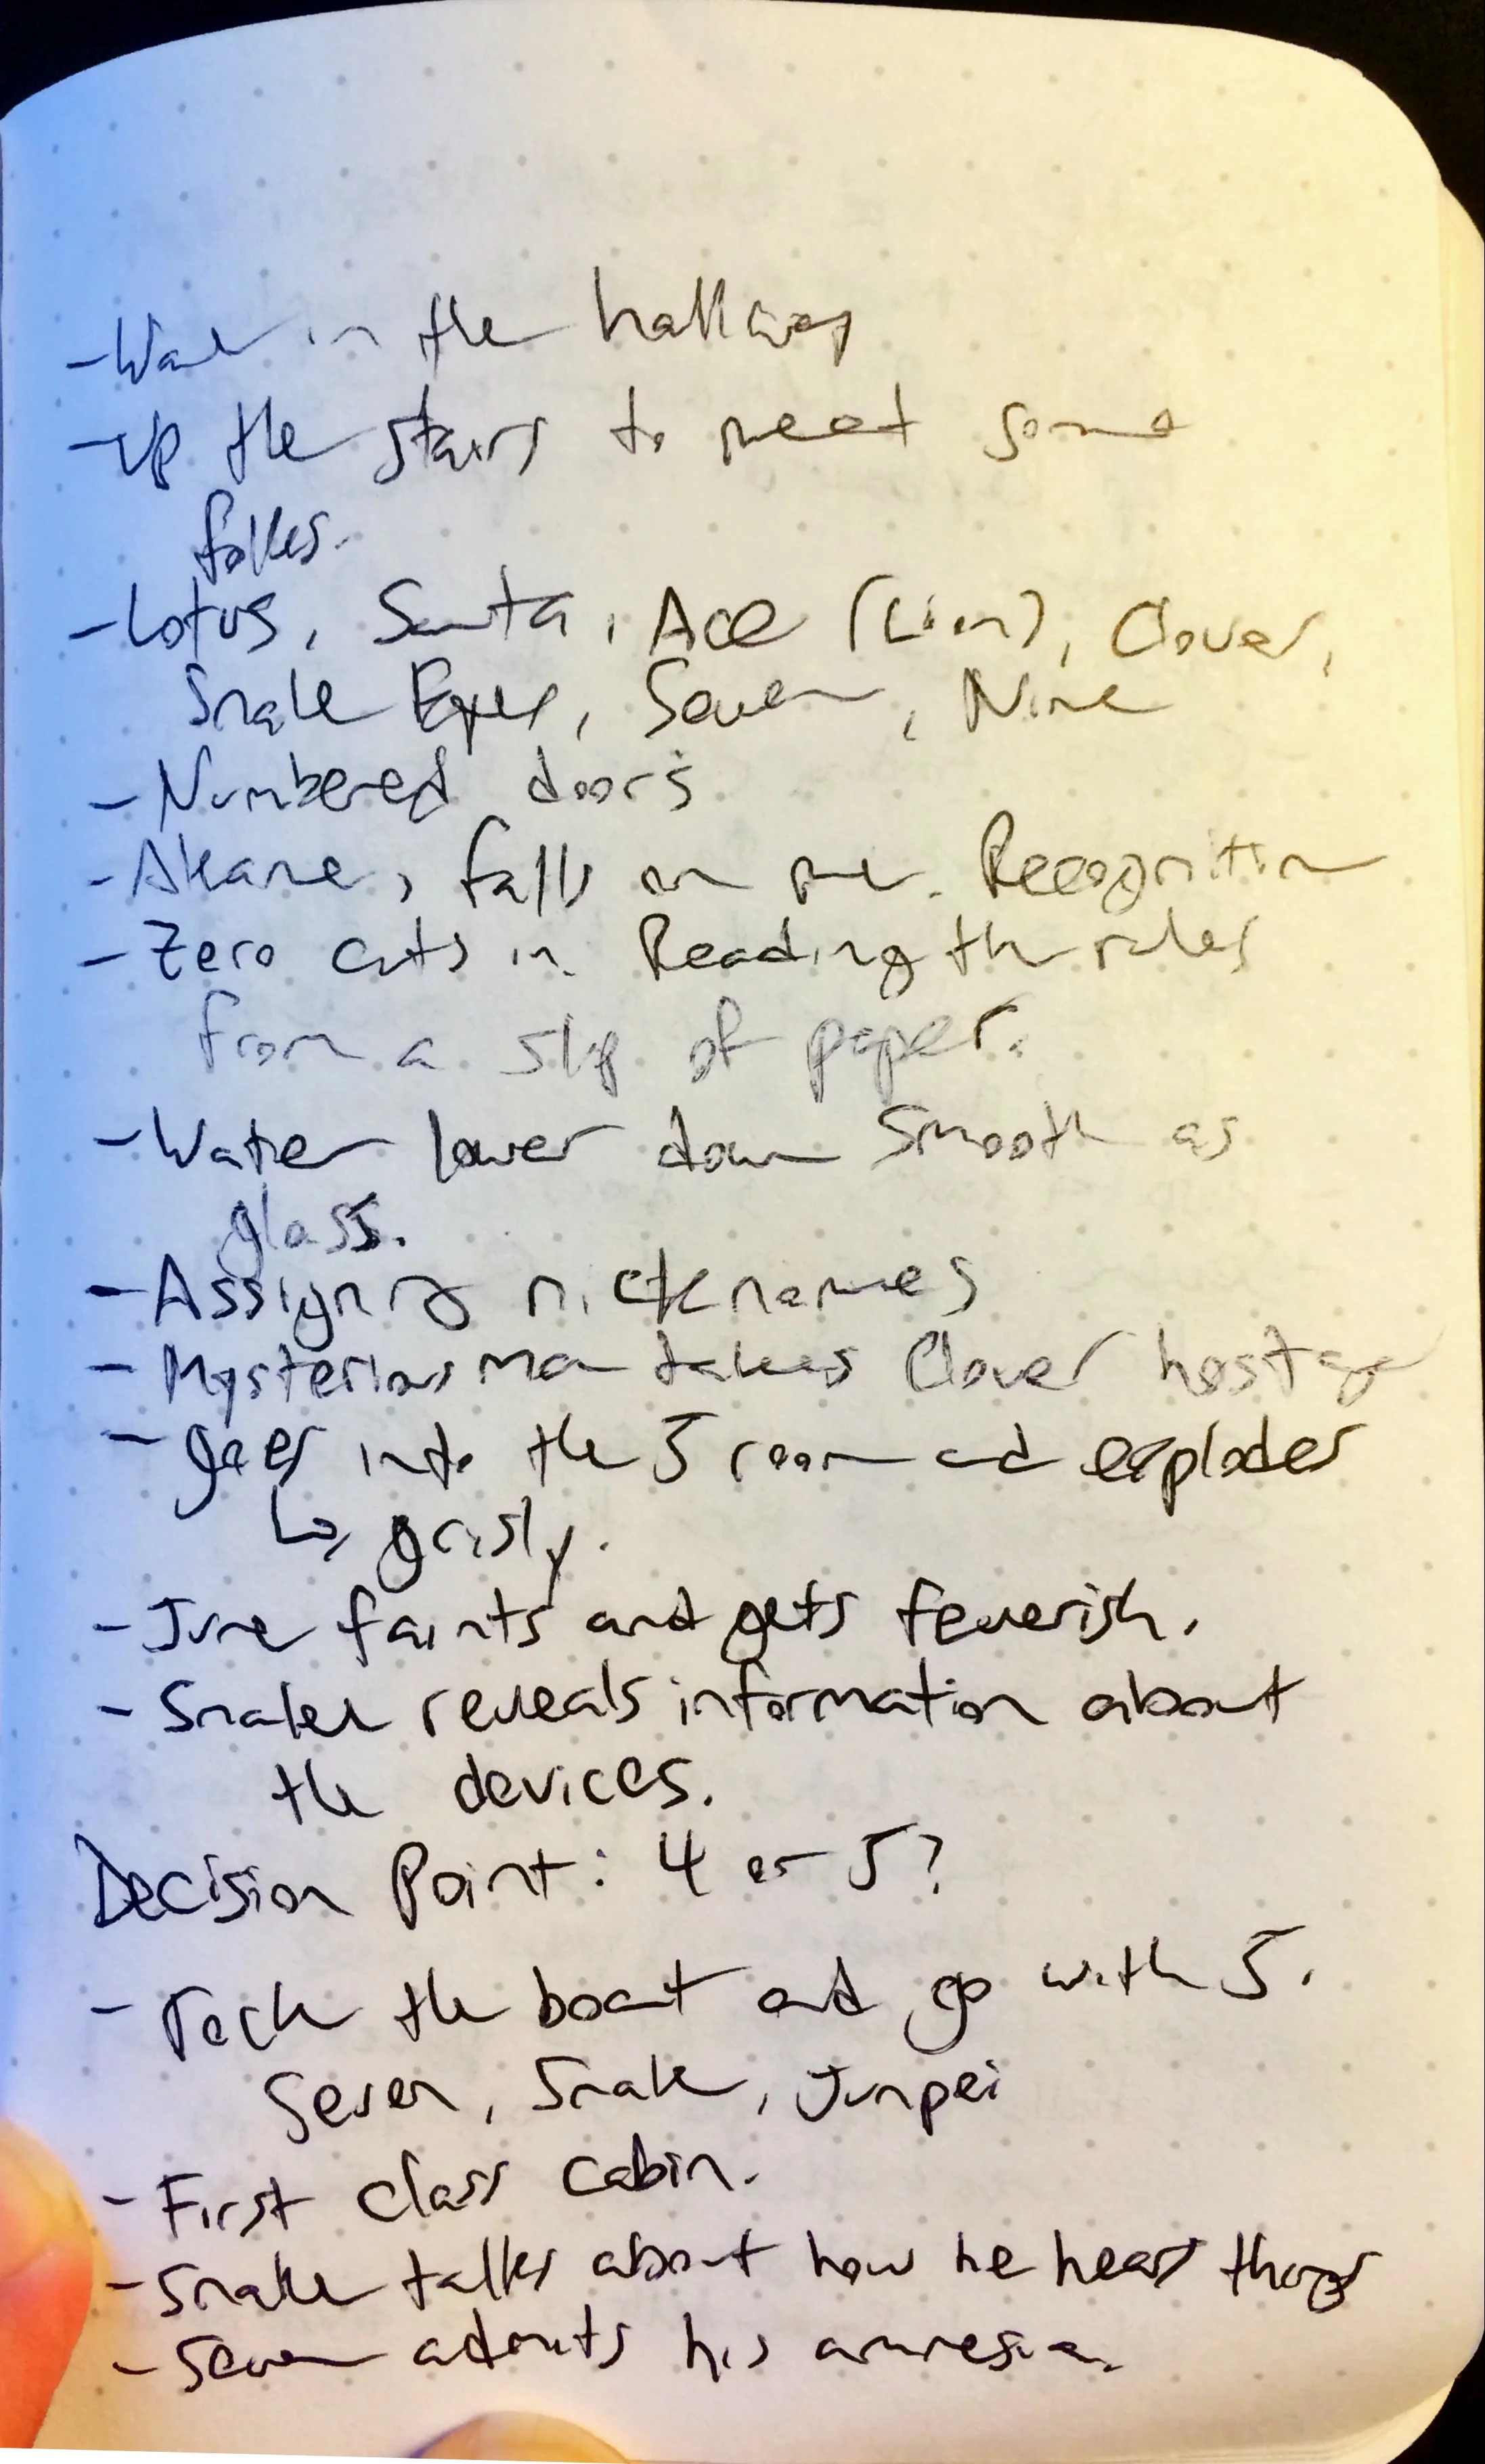 - in the hallway
- Up the stairs to meet some
folks.
- Lotus, Santa, Ace (Lion), Clover,
Snake Eyes, Seven, Nine
- Numbered doors
- Akane, falls on me. Recognition
- Zero cuts in Reading the rules
from a slip of paper.
- Water lower down smooth as
glass.
- Assigning nicknames
- Mysterious man takes Clover hostage
- goes into the 5 room and explodes
↳ grisly.
- June faints and gets feverish.
- Snake reveals information about
the devices.
Decision Point: 4 or 5?
- the boat and go with 5.
Seven, Snake, Junpei
- First class cabin.
- Snake talks about how he hears things
- Seven admits his amnesia.